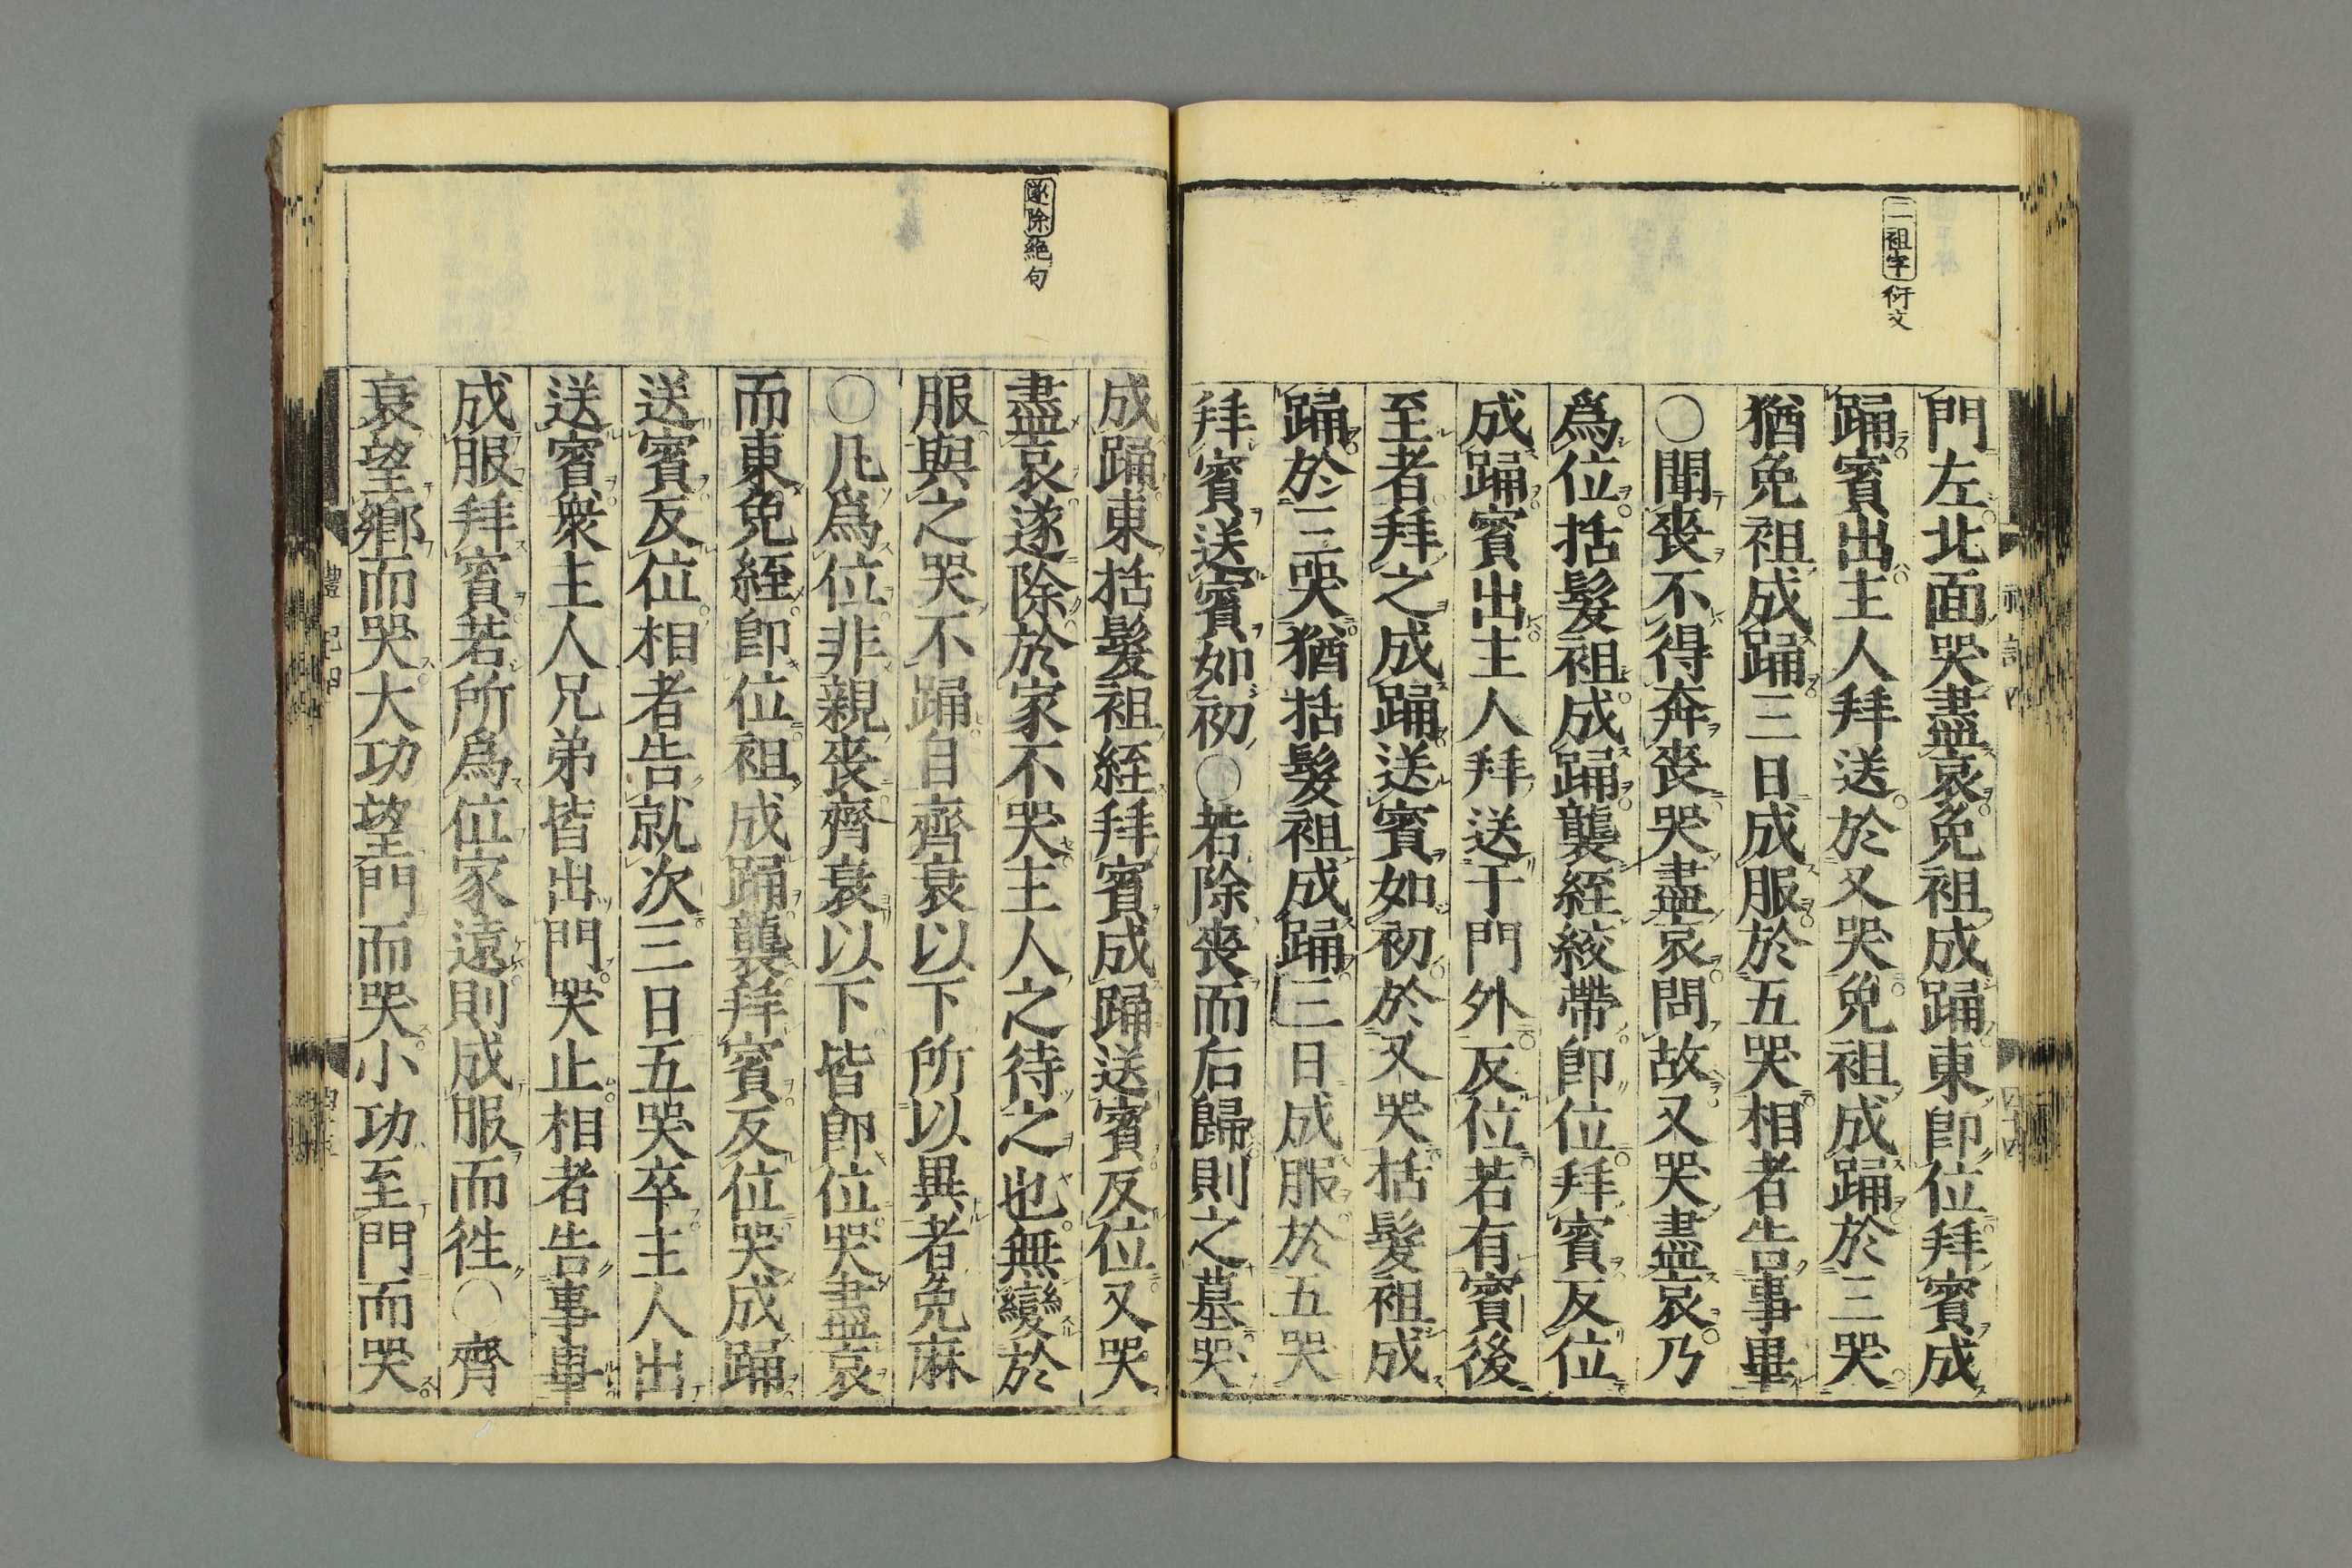 二袒字衍文
門左北面哭盡哀免袒成踊東卽位拜賓成
踊賓出主人拜送於又哭免袒成踊於三哭
猶免袒成踊三日成服於五哭相者告事畢
〇聞喪不得奔喪哭盡哀問故又哭盡哀乃
爲位括髮袒成踊襲絰絞帶卽位拜賓反位
成踊賓出主人拜送于門外反位若有賓後
至者拜之成踊送賓如初於又哭括髮袒成
踊於三哭猶括髮袒成踊三日成服於五哭
拜賓送賓如初〇若除喪而后歸則之墓哭
遂除絶句
成踊東括髮袒絰拜賓成踊送賓反位又哭
盡哀遂除於家不哭主人之待之也無變於
服與之哭不踊自齊衰以下所以異者免麻
〇凡爲位非親喪齊衰以下皆卽位哭盡哀
而東免絰卽位袒成踊襲拜賓反位哭成踊
送賓反位相者告就次三日五哭卒主人出
送賓衆主人兄弟皆出門哭止相者告事畢
成服拜賓若所爲位家遠則成服而徃〇齊
衰望鄕而哭大功望門而哭小功至門而哭